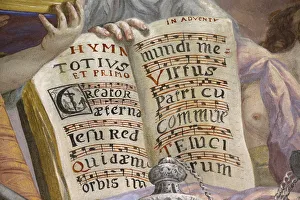 HYMN
TOTIUS
ET PRIMO
Creator
æterna
Iesu Red
Quidæm
orbis im
IN ADVENTV
mundi me
Virtus
Patricu
Commue
TEUCI
TRUM